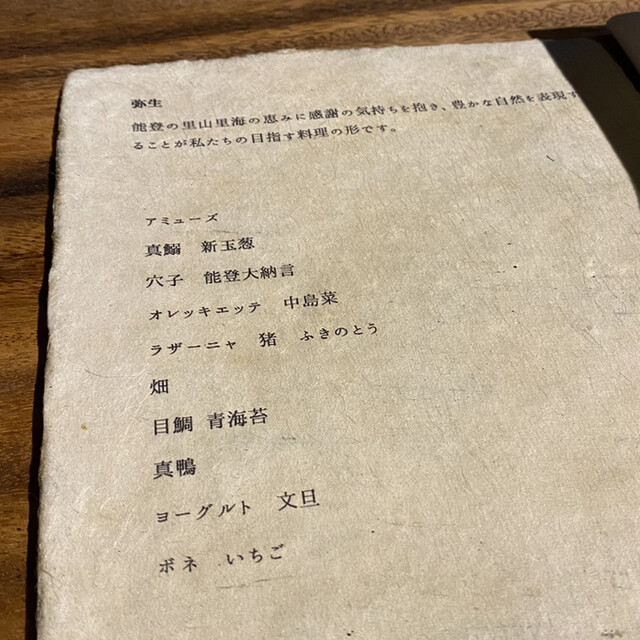 弥生
能登の里山里海の恵みに感謝の気持ちを抱き、豊かな自然を表現す
ることが私たちの目指す料理の形です。
アミューズ
真鰯 新玉葱
穴子 能登大納言
オレッキエッテ 中島菜
ラザーニャ 猪 ふきのとう
畑
目鯛 青海苔
真鴨
ヨーグルト 文旦
ボネ いちご